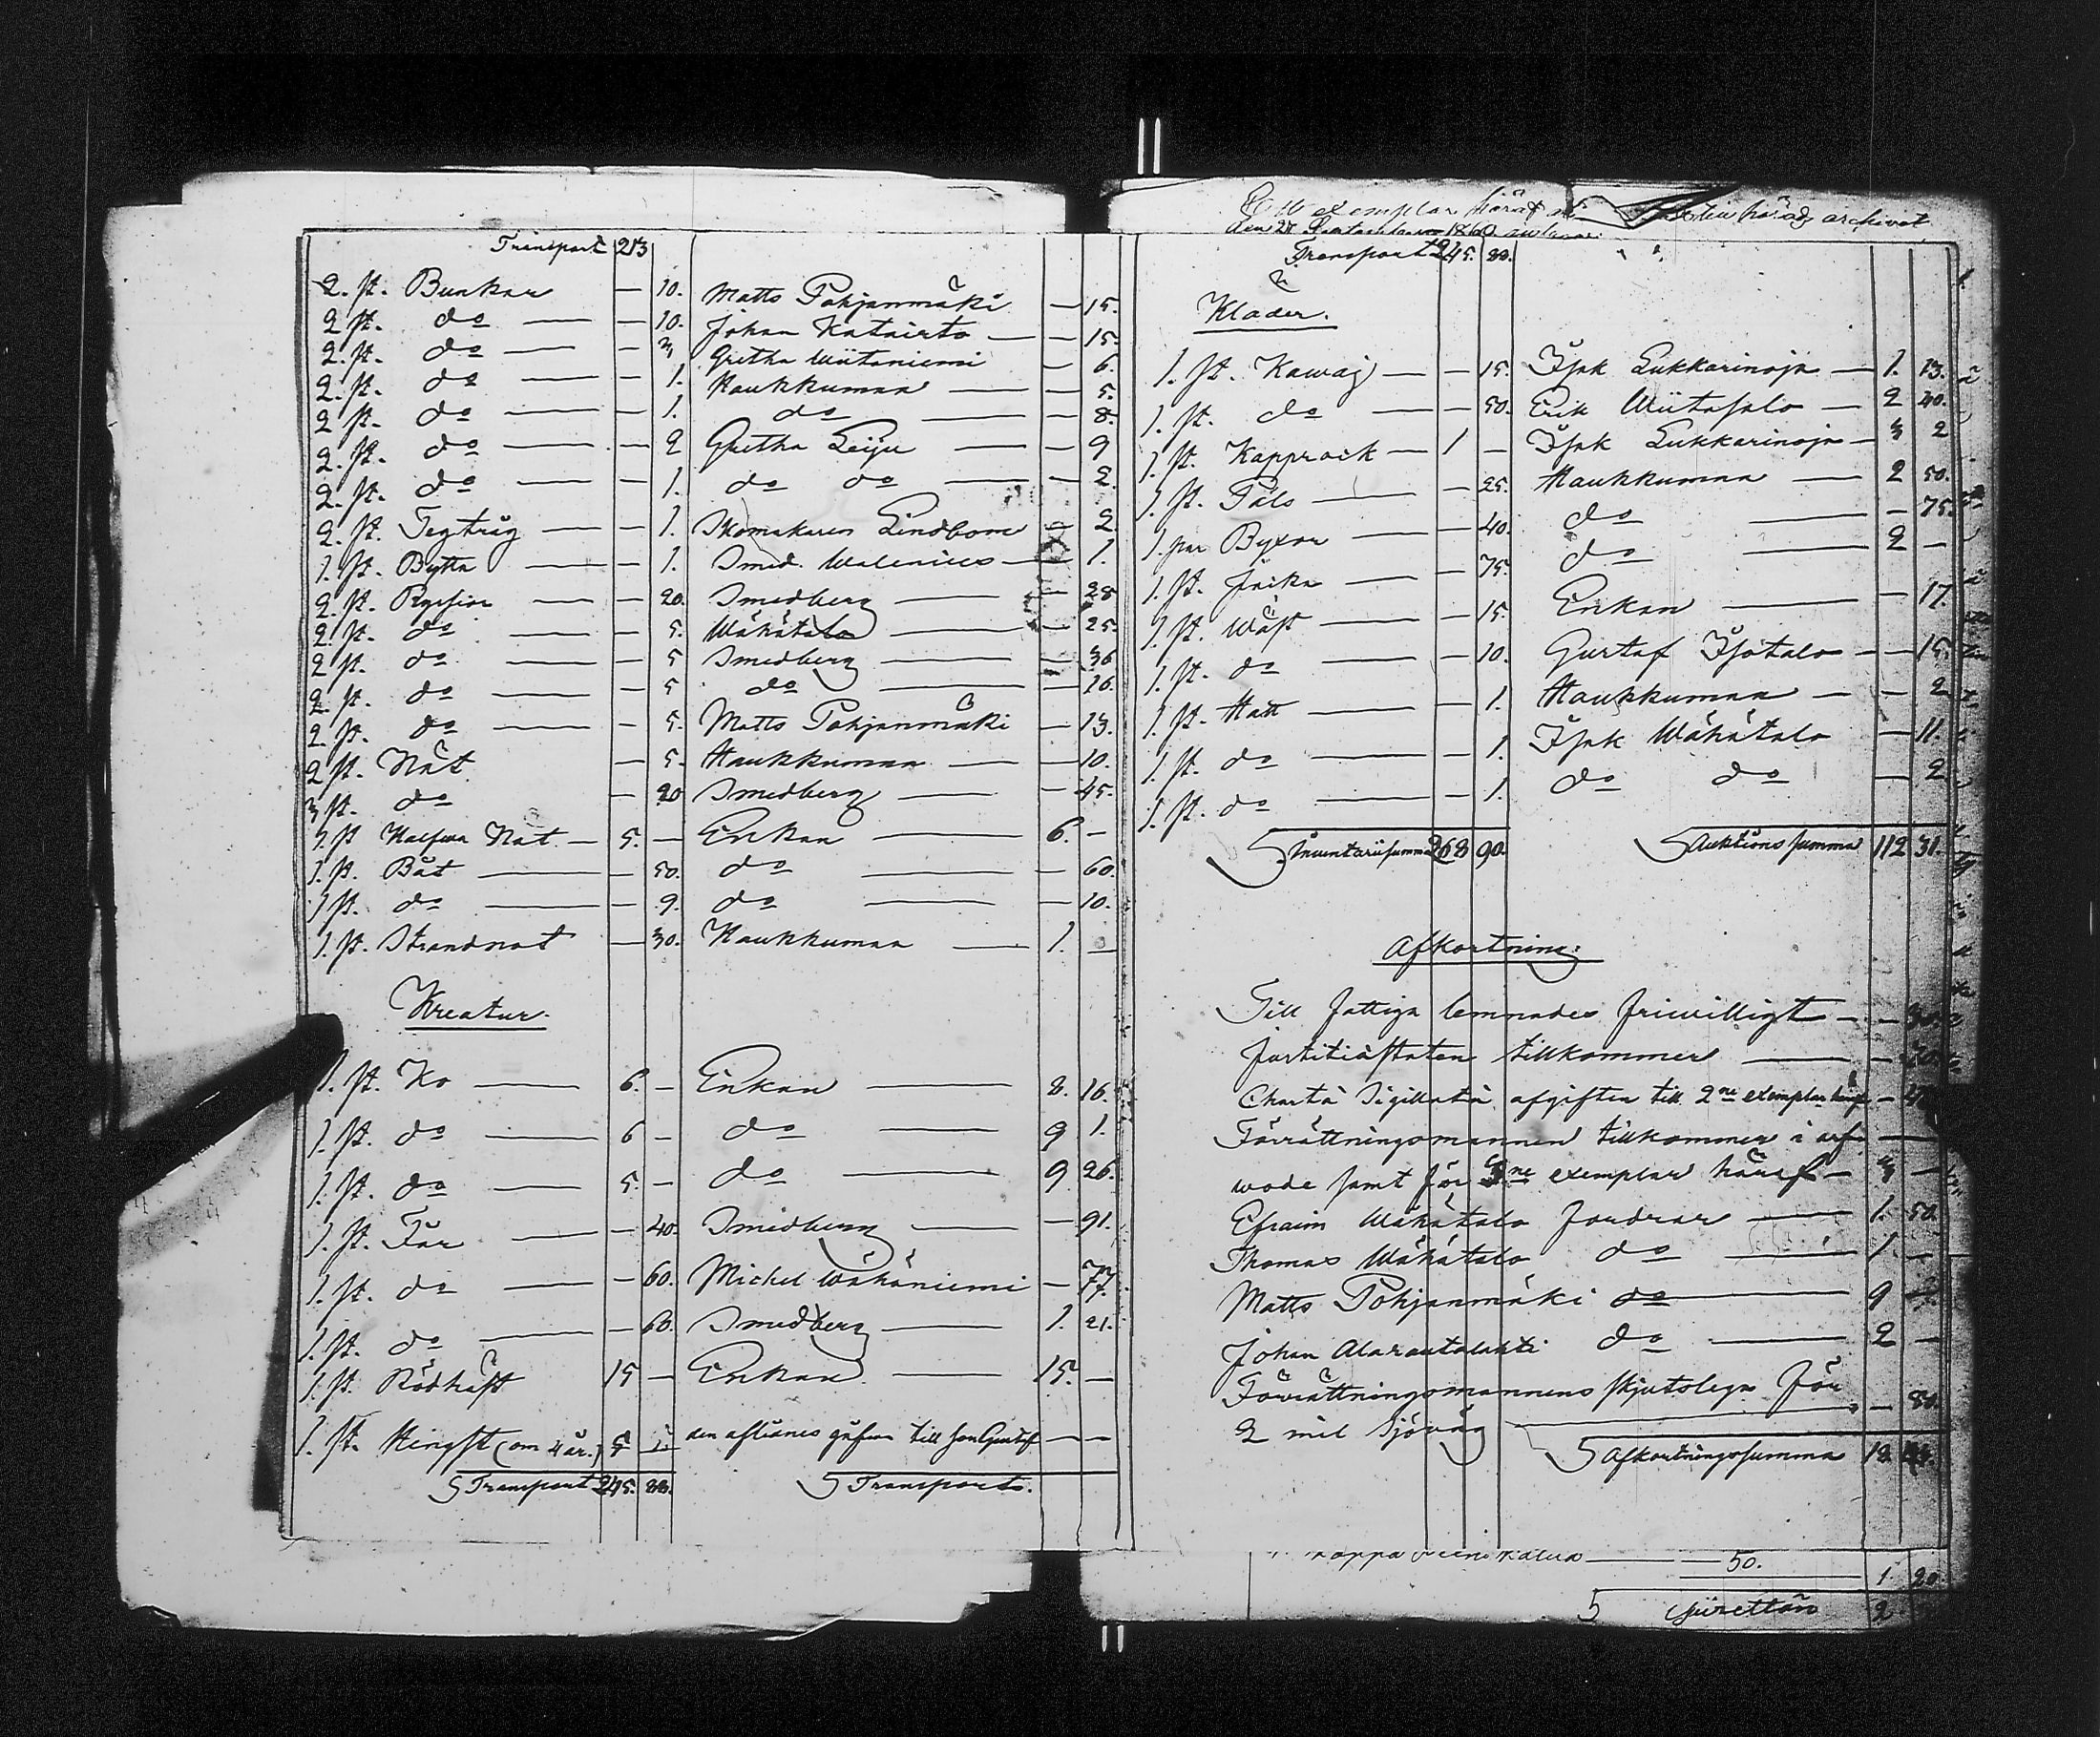 Transport 213
2. st. Bunkar — 10. Matts Pohjanmäki — 15.
2 st. do — 10. Johan Katairto — 15.
2. st. do — 3 Gretha Wiitaniemi — 6.
2. st. do — 1. Haukkumaa — 5.
2 st. do — 1. do — 8.
2. st. do — 2 Gretha Leiju — 9
2. st. do — 1. do do — 2.
2. st. Tegtråg — 1. Skomakaren Lindbom 2
1. st. Bytta — 1. Smed. Walenius — 1.
2. st. Ryssior — 20. Smedberg — 28
2. st. do — 5. Wähätalo — 25.
2 st. do — 5 Smedberg — 36
2. st. do — 5 do — 16.
2. st. do — 5. Matts Pohjanmäki — 13.
2 st. Nät — 5. Haukkumaa — 10.
3 st. do — 20 Smedberg — 45.
1. st Nät — 5. — Enkan — 6. —
1. st. Båt — 50. do — 60.
1 st. do — 9. do — 10.
1. st. Strandnot — 30. Haukkumaa — 1. —
Kreatur.
1. st. Ko — 6. — Enkan — 8. 16.
1. st. do — 6 — do — 9 1.
1. st. do — 5. — do — 9 26.
1. st. Får — 40. Smedberg — 91.
1. st. do — 60. Michel Wähäniemi — 77.
1. st. do — 60. Smedberg — 1. 21.
1. st. Rödhäst 15 — Enkan — 15. —
1. st. Hingst (om 4 år.) 5 den aflidnes gåfva till son Gustaf — —
S Transport 245. 88. S Transport.
Ett exemplar häraf archivet
den 28 September 1860
Transport 245. 88.
Kläder.
1. st. Kawaj — — 15. Isak Lukkarinoja — 1. 13.
1. st. do — — 50. Erik Wiitasalo — 2 40.
1. st. Kapprock — 1 — Isak Lukkarinoja — 3 2
1. st. Päls — — 25. Haukkumaa — 2 50.
1. par Byxor — — 40. do — — 75.
1. st. Jacka — — 75. do — 2 —
1. st. Wäst — — 15. Enkan — — 17.
1. st. do — — 10. Gustaf Isotalo — — 15.
1. st. Hatt — — 1. Haukkumaa — — 2
1. st. do — — 1. Isak Wähätalo — 11.
1. st. do — — 1. do do — 2
S Inventariisumma 268 90. S Auktions summa 112 31.
Afkortning:
Till fattiga lemnades friwilligt — — 30.
Justitiæstaten tillkommer — — 20.
Charta Sigillata afgiften till 2ne exemplar häraf —
Förrättningsmannen tillkommer i arf-
wode samt för 3ne exemplar häraf — 3 —
Efraim Wähätalo fordrar — 1. 50.
Thomas Wähätalo do — 1. —
Matts Pohjanmäki do — 9
Johan Alarautalahti do — 2 —
Förrättningsmannens skjutslega för
2 mil sjöväg — — 80.
S Afkortningssumma 18.
50.
1 20
S 2